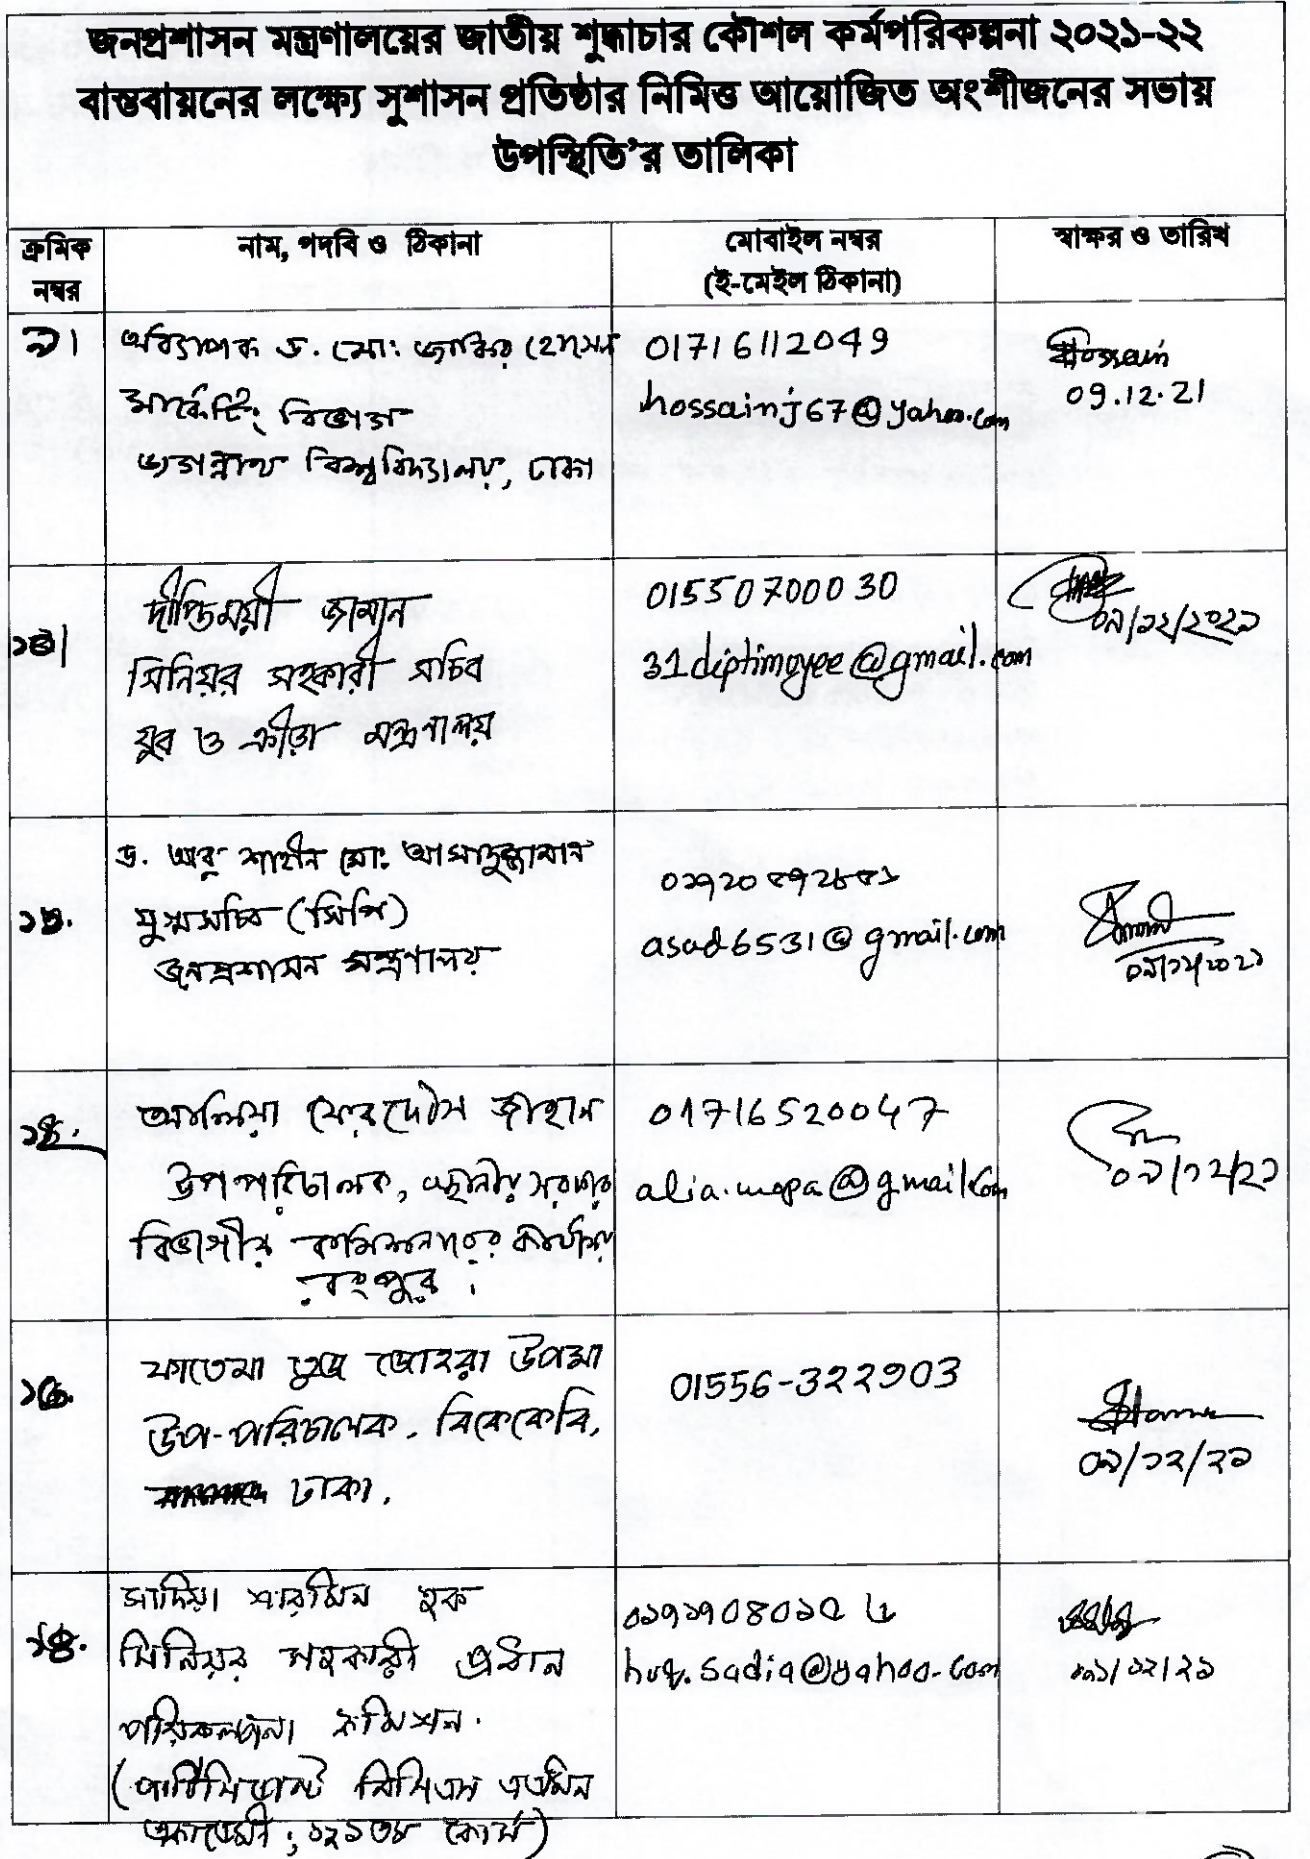 জনপ্রশাসন মন্ত্রণালয়ের জাতীয় শুদ্ধাচার কৌশল কর্মপরিকল্পনা ২০২১-২২
বাস্তবায়নের লক্ষ্যে সুশাসন প্রতিষ্ঠার নিমিত্ত আয়োজিত অংশীজনের সভায়
উপস্থিতি’র তালিকা
ক্রমিক নম্বর
নাম, পদবি ও ঠিকানা
মোবাইল নম্বর
(ই-মেইল ঠিকানা)
স্বাক্ষর ও তারিখ
৯।
অধ্যাপক ড. মো: জাকির হোসেন
মার্কেটিং বিভাগ
জগন্নাথ বিশ্ববিদ্যালয়, ঢাকা
01716112049
hossainj67@yahoo.com
Hossain
09.12.21
দীপ্তিময়ী জামান
সিনিয়র সহকারী সচিব
যুব ও ক্রীড়া মন্ত্রণালয়
01550700030
31diptimoyee@gmail.com
০৯/১২/২০২১
ড. আবু শাহীন মো: আসাদুজ্জামান
যুগ্মসচিব (সিপি)
জনপ্রশাসন মন্ত্রণালয়
asad6531@gmail.com
০৯/১২/২০২১
আলিয়া ফেরদৌস জাহান
উপপরিচালক, স্থানীয় সরকার
বিভাগীয় কমিশনারের কার্যালয়
রংপুর।
01716520047
alia.mopa@gmail.com
০৯/১২/২১
ফাতেমা তুজ জোহরা উপমা
উপ-পরিচালক, বিকেকেবি,
ঢাকা.
01556-322903
০৯/১২/২১
সাদিয়া শারমিন হক
সিনিয়র সহকারী প্রধান
পরিকল্পনা কমিশন.
(পার্টিসিপ্যান্ট বিসিএস এডমিন
একাডেমী; ১২১তম কোর্স)
huq.sadia@yahoo.com
০৯/১২/২১